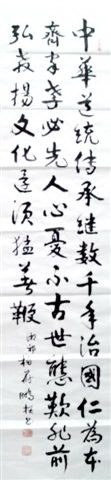 中華道統傳承繼數千年治國仁為本
齊家孝必先人心憂不古世態歎非前
弘義揚文化還須猛著鞭